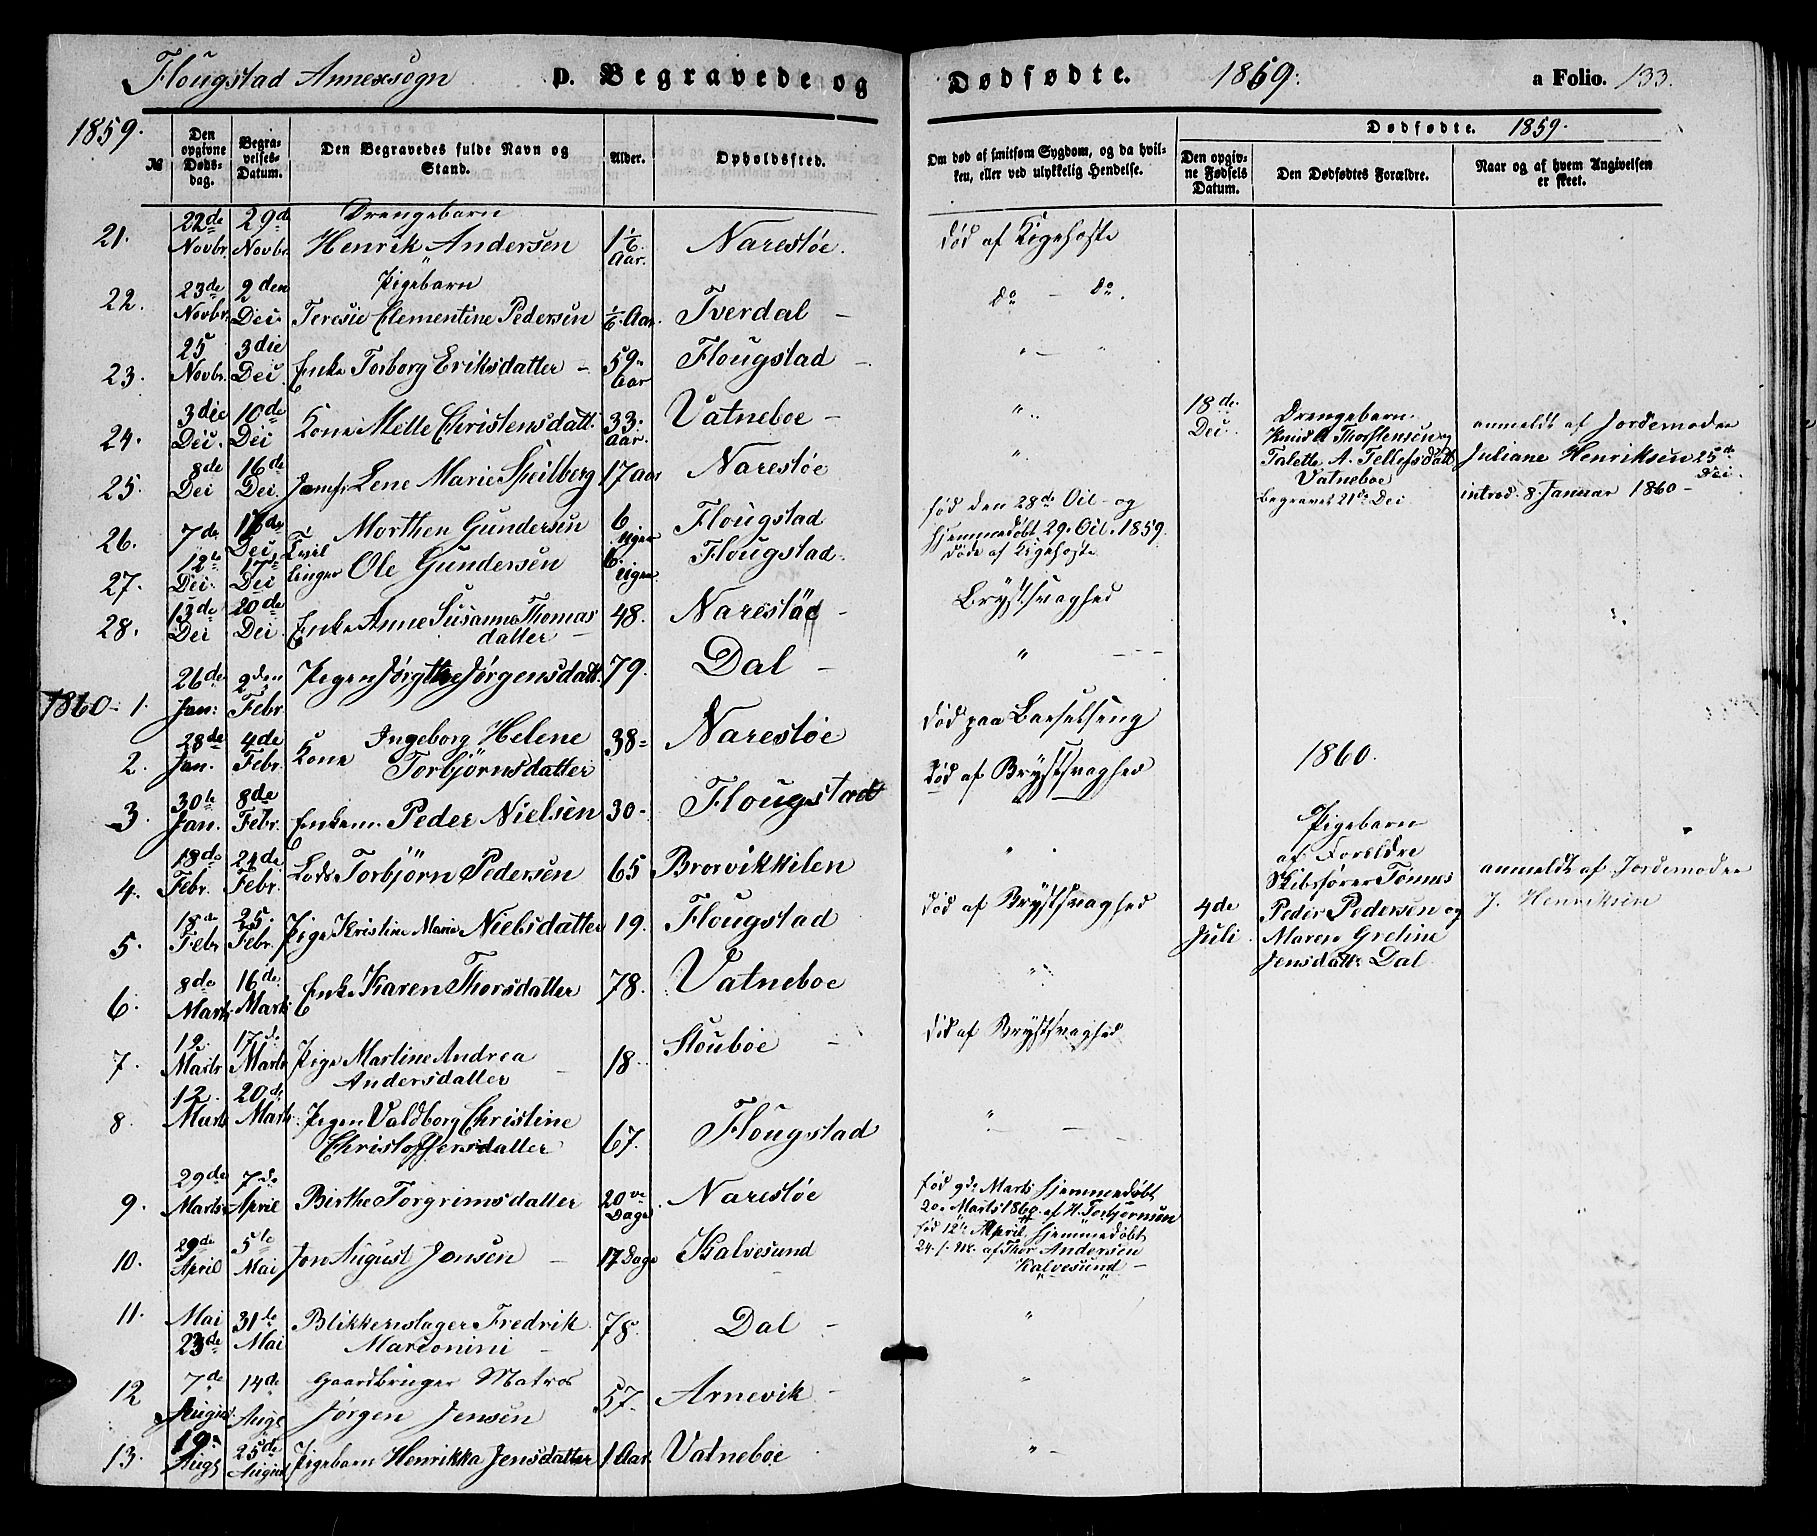 Flougstad Annexsogn
D. Begravede og
Dødfødte.
1859.
a Folio. 133.
1859.
№
Den opgivne Døds-dag.
Begra-velses-Datum.
Den Begravedes fulde Navn og Stand.
Alder.
Opholdssted.
Om død af smitsom Sygdom, og da hvil-
ken, eller ved ulykkelig Hendelse.
Dødfødte. 1859.
Den opgiv-ne Fødsels Datum.
Den Dødfødtes Forældre.
Naar og af hvem Angivelsen er skeet.
21. 22de Novbr. 29de Novbr. Drengebarn
Henrik Andersen 1 1/6 Aar. Narestøe. død af Kigehoste
22. 23de Novbr. 2den Dec. Pigebarn
Teresie Clementine Pedersen 1/6 Aar. Tverdal – do – do.
23. 25 Novbr. 3die Dec. Enke Torborg Eriksdatter – 59 Aar Flougstad – " – "
24. 3die Dec. 10de Dec Kone Mette Christensdatt. 33 Aar. Vatneboe – "
25. 8de Dec 16de Dec. Jomfr. Lene Marie Speilberg 17 Aar Narestøe "
26. 7de 16de Dec. Tvil Morthen Gundersen 6 Uger Flougstad født den 28de Oct. og
hjemmedøbt 29. Oct. 1859.
døde af Kigehoste
27. 12te Dec. 17de Dec linger Ole Gundersen 6. Uger Flougstad.
28. 13de Dec 20de Dec. Enke Anne Susanne Thomas
datter – 48. Narestøe – Brystsvaghed
1860 – 1. 26de Jan: 2den Febr. Pigen Jørgthe Jørgensdatt. 79. Dal – "
2. 28de Jan. 4de Febr. Kone Ingeborg Helene
Torbjörnsdatter 38 Narestøe død paa Barselseng
3. 30te Jan. 8de Febr. Enkem. Peder Nielsen 30 – Flougstad død af Brystsvaghed
4. 18de Febr. 24de Febr. Lods Torbjörn Pedersen 65 Brorvikkilen " "
5. 18de Febr 25. Febr. Pige Kristine Marie Nielsdatter 19. Flougstad død af Brystsvaghed
6. 8de Marts 16de Marts Enke Karen Thorsdatter 78. Vatneboe "
7. 12. Marts 17de Marts Pige Martine Andrea
Andersdatter – 18. Stouboe – død af Brystsvaghed
8. 12. Marts 20de Marts. Pigen Valdborg Christine
Christoffersdatter 67. Flougstad "
9. 29de Marts 7de April Birthe Torgrimsdatter 20ve Dage Narestøe født 9de Marts hjemmedøbt
20. Marts 1860 af H. Torbjörnsen
10. 29de April 5te Mai Jon August Jonsen – 17 Dage Kalvesund fød 12te April hjemmedøbt
24. s. M. af Thor Andersen
Kalvesund –
11. Mai 23de 31te Mai Blikkenslager Fredrik
Marconini – 78. Dal – "
12 7de August. 14de Aug. Gaardbruger Matros
Jørgen Jensen 57. Arnevik – "
13. 19. Aug. 25de August Pigebarn Henrikka Jensdatter 1 Aar. Vatneboe "
18de Dec.
Drengebarn.
Knud A Thorstensen og
Talette A. Tellefsdatt.
Vatneboe
Begravet 21de Dec
anmeldt af Jordemoder
Juliane Henriksen 25de Dec.
introd. 8. Januar 1860 –
1860.
4de Juli
Pigebarn
af Foreldre
Skibsfører Tønnes
Peder Pedersen og
Maren Gretine
Jensdatt. Dal
anmeldt af Jordemoder
J. Henriksen